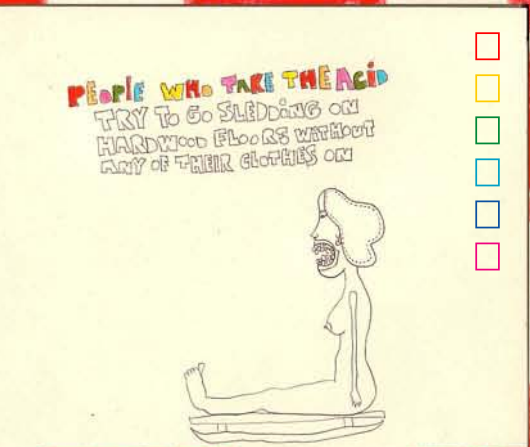 PEOPLE WHO TAKE THE ACID
TRY TO GO SLEDDING ON
HARDWOOD FLOORS WITHOUT
ANY OF THEIR CLOTHES ON